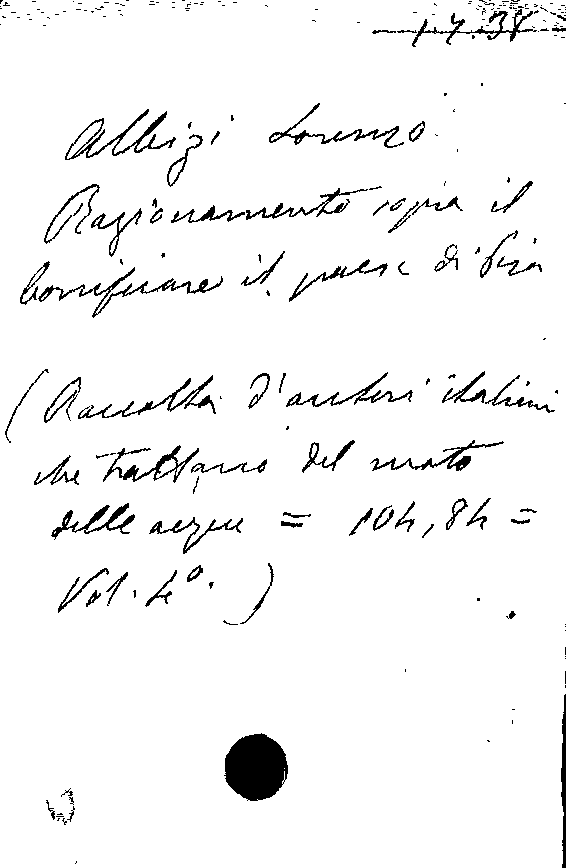 1.7.38
Albizi Lorenzo
Ragionamento sopra il
bonificare il paese di Pisa
(Raccolta d'autori italiani
che trattano del moto
delle acque = 104,84 =
Vol. 4°.)